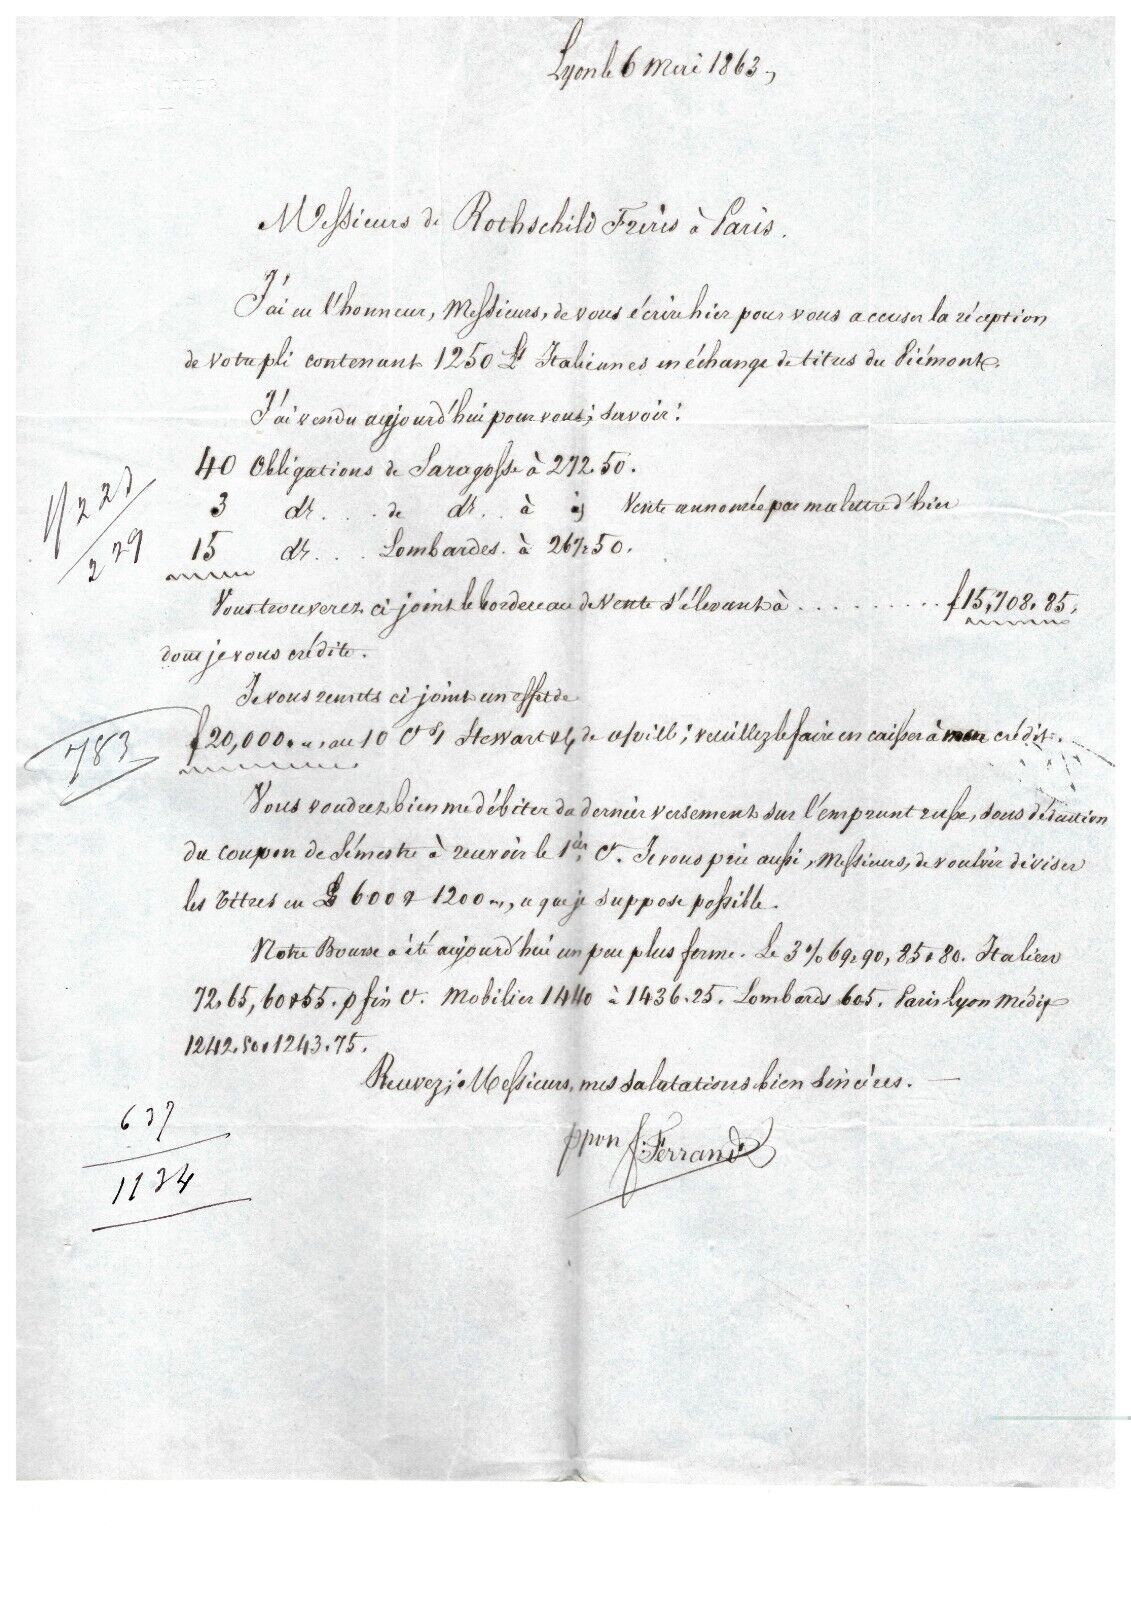 Lyon le 6 Mai 1863,
Messieurs de Rothschild Frères à Paris.
J'ai eu l'honneur, Messieurs, de vous écrire hier pour vous accuser la réception
de votre pli contenant 1250 Lt Italiennes en échange de titres du Piémont.
J'ai vendu aujourd'hui pour vous; savoir:
40 Obligations de Saragosse à 272.50.
3 do... de do... à Vente annoncée par ma lettre d'hier
1/228
229
15 do... Lombardes. à 267.50.
Vous trouverez ci joint le bordereau de vente s'élevant à .......... f 15,708.85,
dont je vous crédite.
Je vous remets ci joint un effet de
783
f 20,000 au 10 Ct s/ Stewart de v/ville; veuillez le faire encaisser à mon crédit.
Vous voudrez bien me débiter du dernier versement sur l'emprunt russe, sous déduction
du coupon de Sémestre à recevoir le 1er Ct. Je vous prie aussi, Messieurs, de vouloir diviser
les titres en 600 & 1200, ce que je suppose possible.
Notre Bourse a été aujourd'hui un peu plus ferme. Le 3% 69.90, 85 & 80. Italien
72.65, 60 & 55. p fin Ct. Mobilier 1440 à 1436.25. Lombards 605. Paris Lyon Médie
1242.50 & 1243.75.
Recevez, Messieurs, mes salutations bien sincères. —
ppon f. Ferrand
637
1134